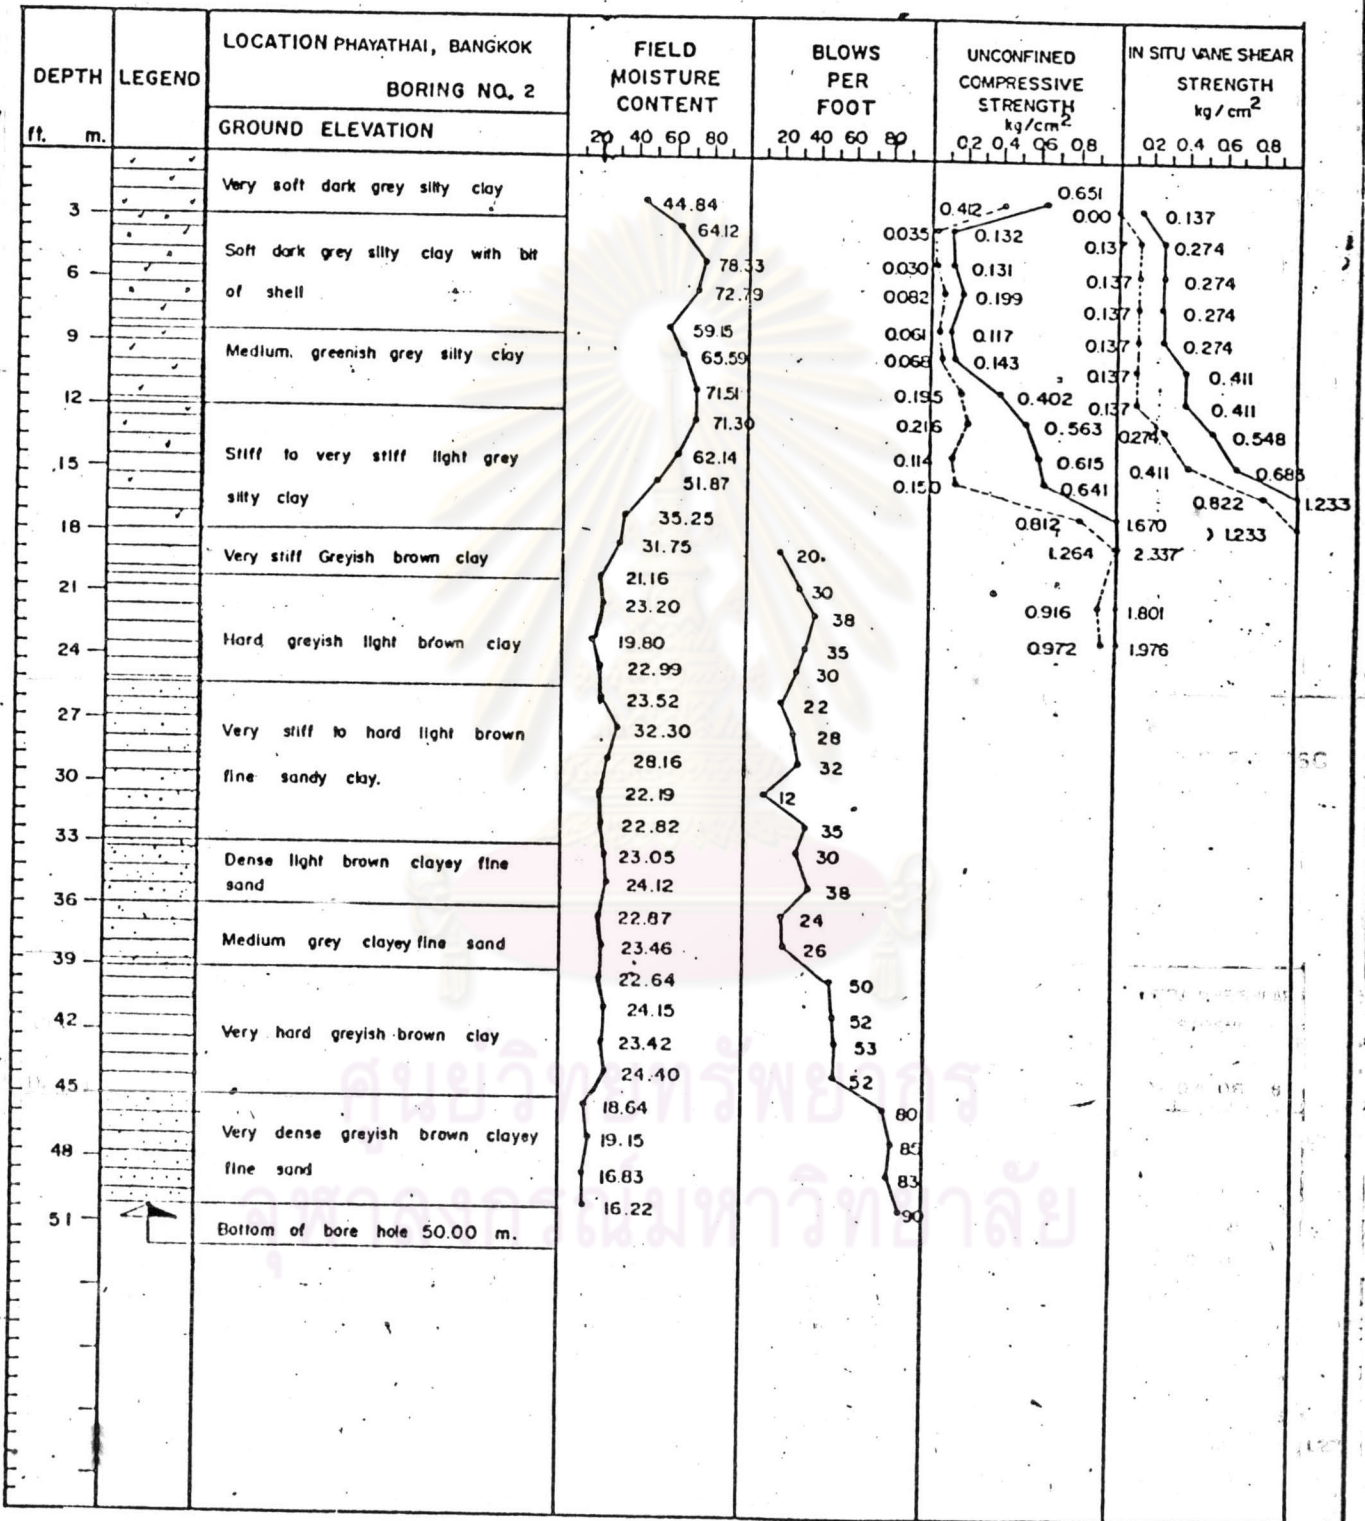 DEPTH
ft. m.
LEGEND
LOCATION PHAYATHAI, BANGKOK
BORING NO. 2
GROUND ELEVATION
FIELD
MOISTURE
CONTENT
20 40 60 80
BLOWS
PER
FOOT
20 40 60 80
UNCONFINED
COMPRESSIVE
STRENGTH
kg/cm²
0.2 0.4 0.6 0.8
IN SITU VANE SHEAR
STRENGTH
kg/cm²
0.2 0.4 0.6 0.8
3
6
9
12
15
18
21
24
27
30
33
36
39
42
45
48
51
Very soft dark grey silty clay
Soft dark grey silty clay with bit
of shell
Medium. greenish grey silty clay
Stiff to very stiff light grey
silty clay
Very stiff Greyish brown clay
Hard greyish light brown clay
Very stiff to hard light brown
fine sandy clay.
Dense light brown clayey fine
sand
Medium grey clayey fine sand
Very hard greyish brown clay
Very dense greyish brown clayey
fine sand
Bottom of bore hole 50.00 m.
44.84
64.12
78.33
72.79
59.15
65.59
71.51
71.30
62.14
51.87
35.25
31.75
21.16
23.20
19.80
22.99
23.52
32.30
28.16
22.19
22.82
23.05
24.12
22.87
23.46
22.64
24.15
23.42
24.40
18.64
19.15
16.83
16.22
20.
30
38
35
30
22
28
32
12
35
30
38
24
26
50
52
53
52
80
85
83
90
0.412 0.651
0.035 0.132
0.030 0.131
0.082 0.199
0.061 0.117
0.068 0.143
0.195 0.402
0.216 0.563
0.114 0.615
0.150 0.641
0.812 1.670
1.264 2.337
0.916 1.801
0.972 1.976
0.00 0.137
0.137 0.274
0.137 0.274
0.137 0.274
0.137 0.274
0.137 0.411
0.137 0.411
0.274 0.548
0.411 0.685
0.822 1.233
1.233
ศูนย์วิทยทรัพยากร
จุฬาลงกรณ์มหาวิทยาลัย